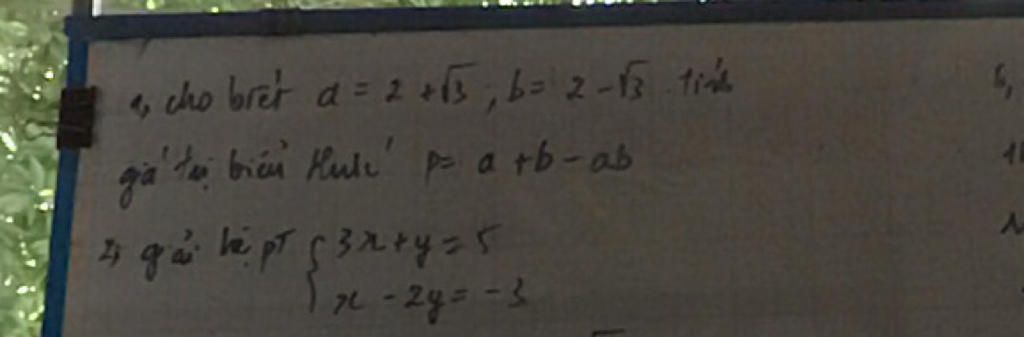 1, cho biết a = 2 + √3 ; b = 2 - √3 . tính
giá trị biểu thức P = a + b - ab
2, giải hệ pT { 3x + y = 5
x - 2y = -3